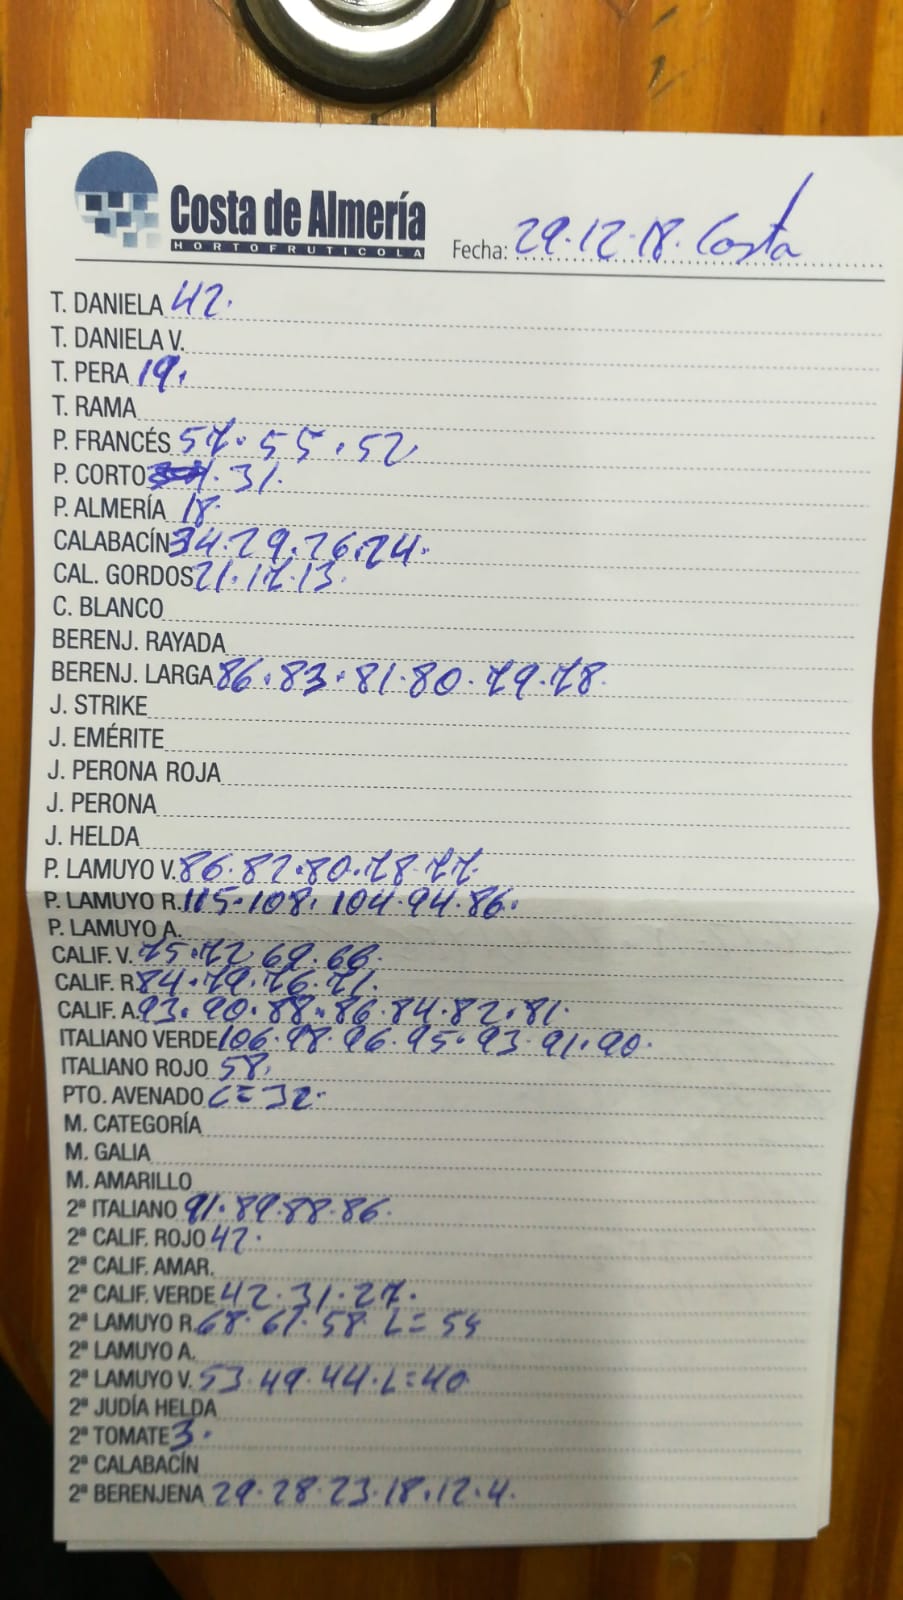 Costa de Almería
HORTOFRUTICOLA
Fecha: 29.12.18. Costa
T. DANIELA 42.
T. DANIELA V.
T. PERA 19.
T. RAMA
P. FRANCÉS 57. 55. 52
P. CORTO . 31.
P. ALMERÍA 18.
CALABACÍN 34. 29. 26. 24.
CAL. GORDOS 21. 17. 13.
C. BLANCO
BERENJ. RAYADA
BERENJ. LARGA 86. 83. 81. 80. 79. 78.
J. STRIKE
J. EMÉRITE
J. PERONA ROJA
J. PERONA
J. HELDA
P. LAMUYO V. 86. 82. 80. 78. 77.
P. LAMUYO R. 115. 108. 104. 94. 86.
P. LAMUYO A.
CALIF. V. 75. 72. 69. 66.
CALIF. R. 84. 79. 76. 71.
CALIF. A. 93. 90. 88. 86. 84. 82. 81.
ITALIANO VERDE 106. 98. 96. 95. 93. 91. 90.
ITALIANO ROJO 58.
PTO. AVENADO C = 32.
M. CATEGORÍA
M. GALIA
M. AMARILLO
2ª ITALIANO 91. 89. 88. 86.
2ª CALIF. ROJO 42.
2ª CALIF. AMAR.
2ª CALIF. VERDE 42. 31. 27.
2ª LAMUYO R. 68. 61. 58. L = 54
2ª LAMUYO A.
2ª LAMUYO V. 53. 49. 44. L = 40
2ª JUDÍA HELDA
2ª TOMATE 3.
2ª CALABACÍN
2ª BERENJENA 29. 28. 23. 18. 12. 4.